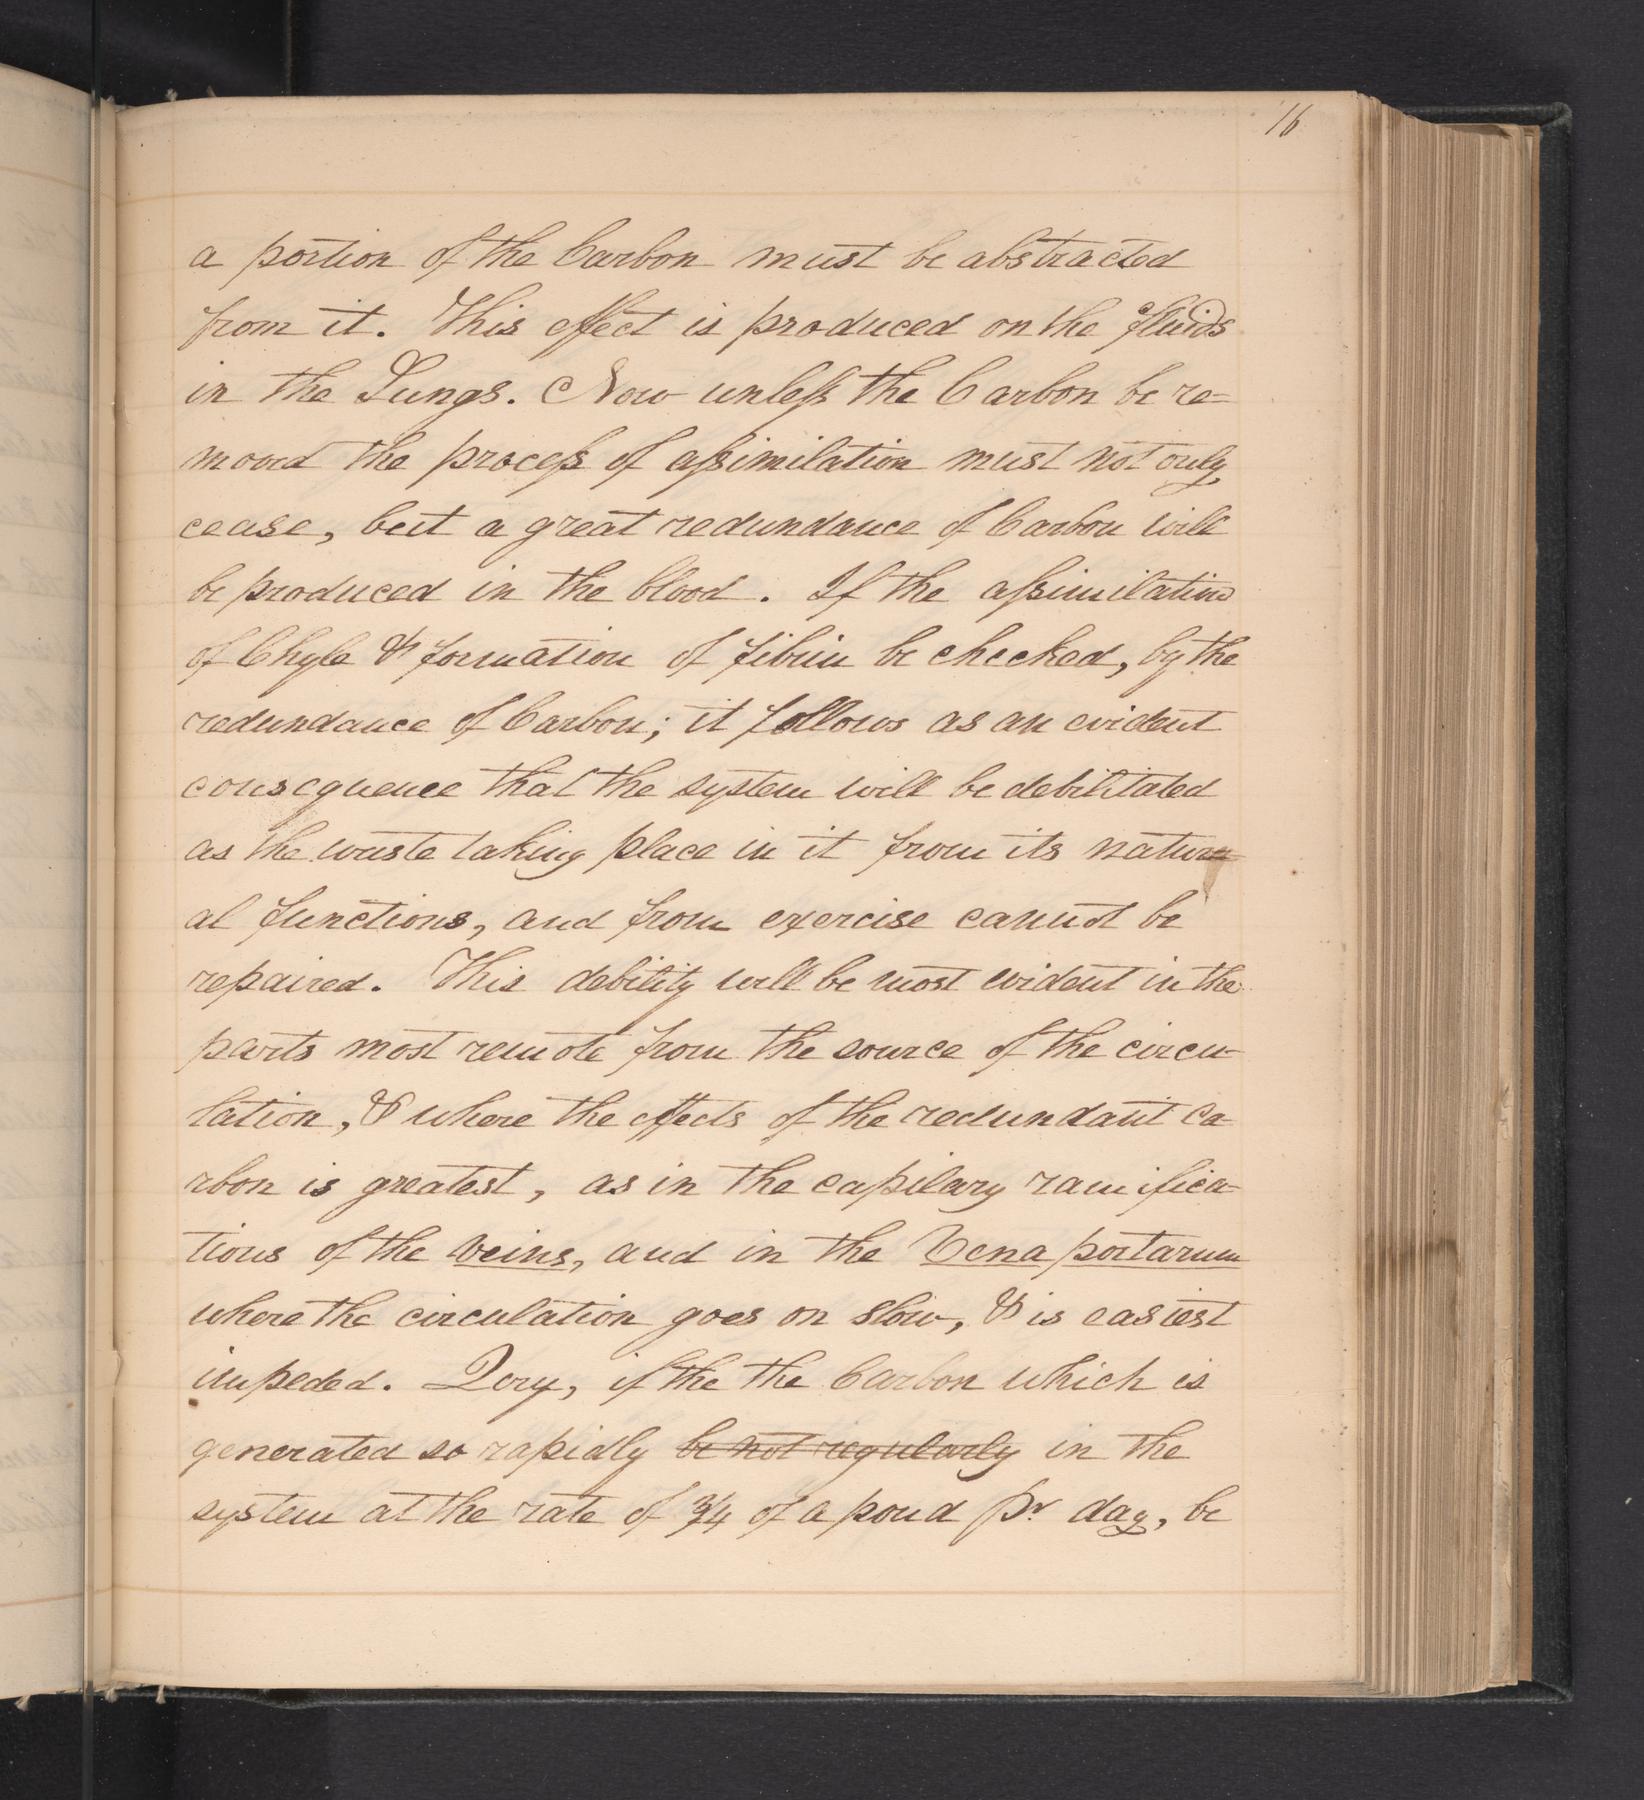 16
a portion of the Carbon must be abstracted
from it. This effect is produced on the fluids
in the Lungs. Now unless the Carbon be re=
moved the process of assimilation must not only
cease, but a great redundance of Carbon will
be produced in the blood. If the assimilation
of Chyle & formation of fibrin be checked, by the
redundance of Carbon; it follows as an evident
consequence that the system will be debilitated
as the waste taking place in it from its natur=
al functions, and from exercise cannot be
repaired. This debility will be most evident in the
parts most remote from the source of the circu-
lation, & where the effects of the redundant ca=
rbon is greatest, as in the capilary ramifica=
tions of the veins, and in the Vena portarum
where the circulation goes on slow, & is easiest
impeded. Qery, if the the Carbon which is
generated so rapidly be not regularly in the
system at the rate of 3/4 of a poud pr day, be